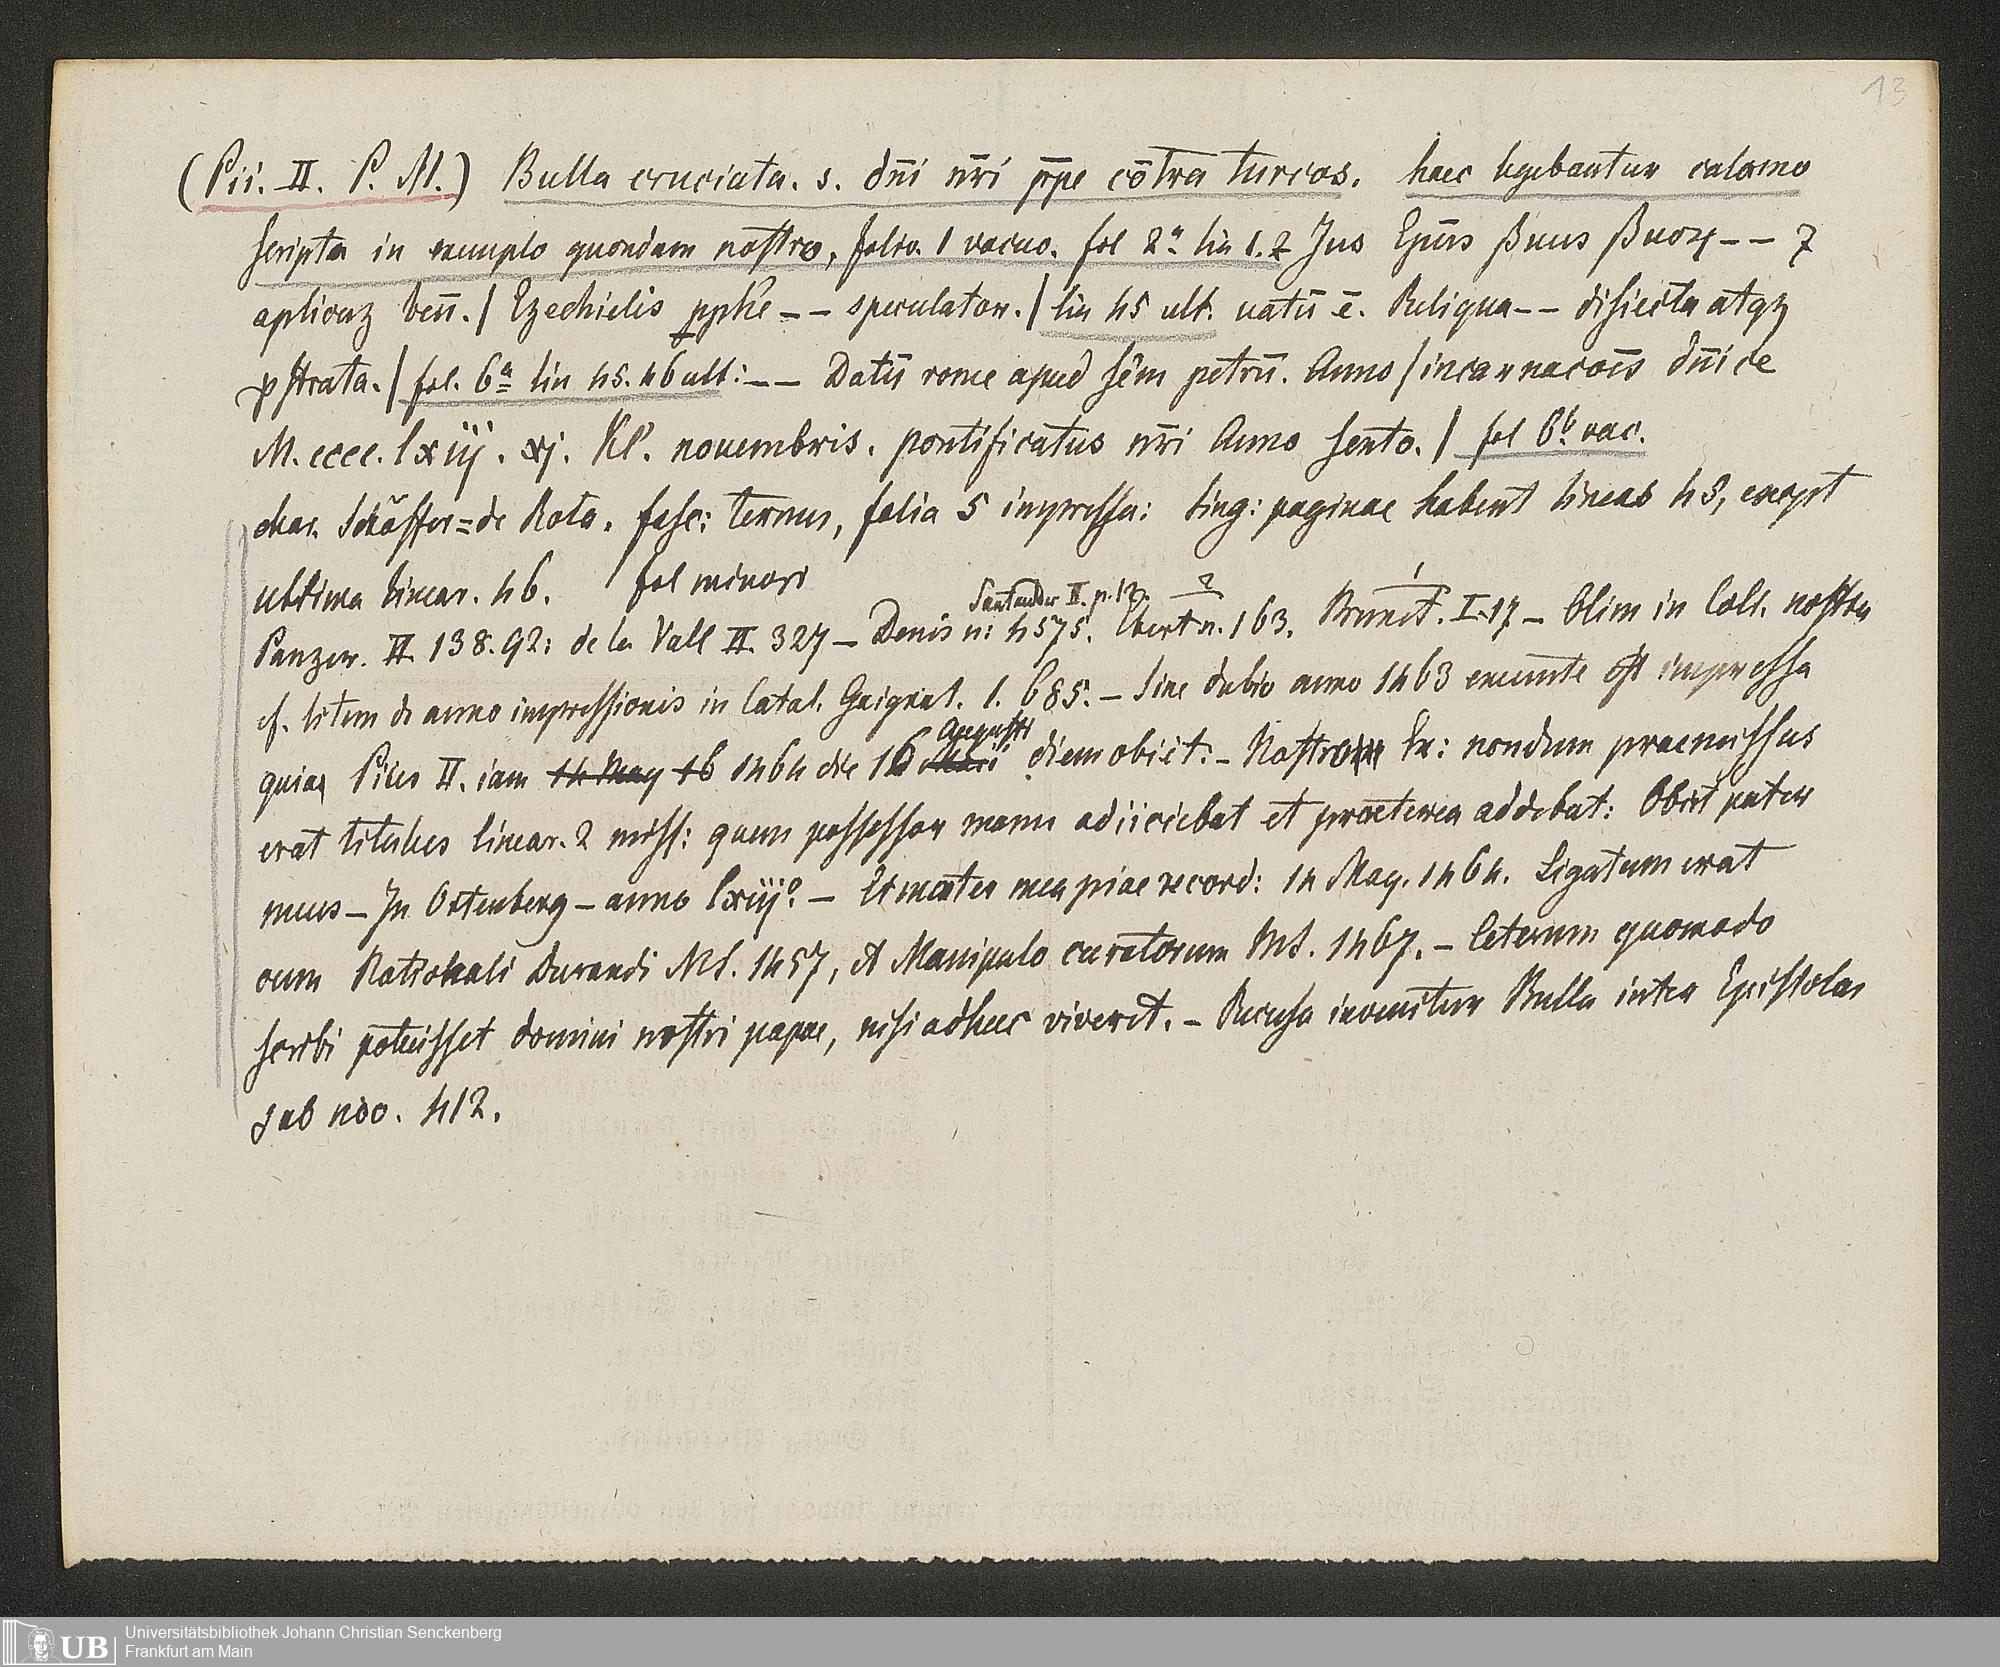 13
(Pii. II. P. M.) Bulla cruciata. s. dn̄i nr̄i pp̄e cōtra turcos. haec legebantur calamo
scripta in exemplo quondam nostro, folio. 1 vacuo. fol 2ª lin 1. 2 Ius Ep̄us
aplicaz ben̄. / Ezechielis pphe -- speculator. / lin 45 ult. natū ē. Reliqua -- disiecta atqz
pstrata. / fol. 6ª lin 45. 46 ult: -- Datū rome apud sēm petrū. Anno / incarnacoīs dn̄ice
M. cccc. lxiij. xj. Kl'. novembris. pontificatus nr̄i Anno sexto. / fol 6ᵇ vac.
char. Schöffer = de Rota. fasc: ternus, folia 5 impressa: sing: paginae habent lineas 45, except
ultima linear. 46. fol minori
Santander II. p. 12. 2
Panzer. II. 138. 92: de la Vall II. 327 - Denis n: 4575. Ebert n. 163. Brunet. I. 17 - Olim in Coll. nostra
cf. litem de anno impressionis in Catal. Gaignat. 1. 685. - Sine dubio anno 1463 exeunte est impressa
Augusti
quia Pius II. iam 14 May 16 1464 die 16 diem obiit: - Nostro Ex: nondum praemissus
erat titulus linear. 2 miss: quem possessor manu adiiciebat et praeterea addebat: Obiit pater
meus - In Ortenberg - anno lxiij° - Et mater mea piae record: 14 May. 1464. Ligatum erat
cum Rationali Durandi MS. 1457, et Manipulo curatorum MS. 1467. - Ceterum quomodo
scribi potuisset domini nostri papae, nisi adhuc viveret. - Recusa invenitur Bulla inter Epistolas
sub nôo. 412.
UB
Universitätsbibliothek Johann Christian Senckenberg
Frankfurt am Main